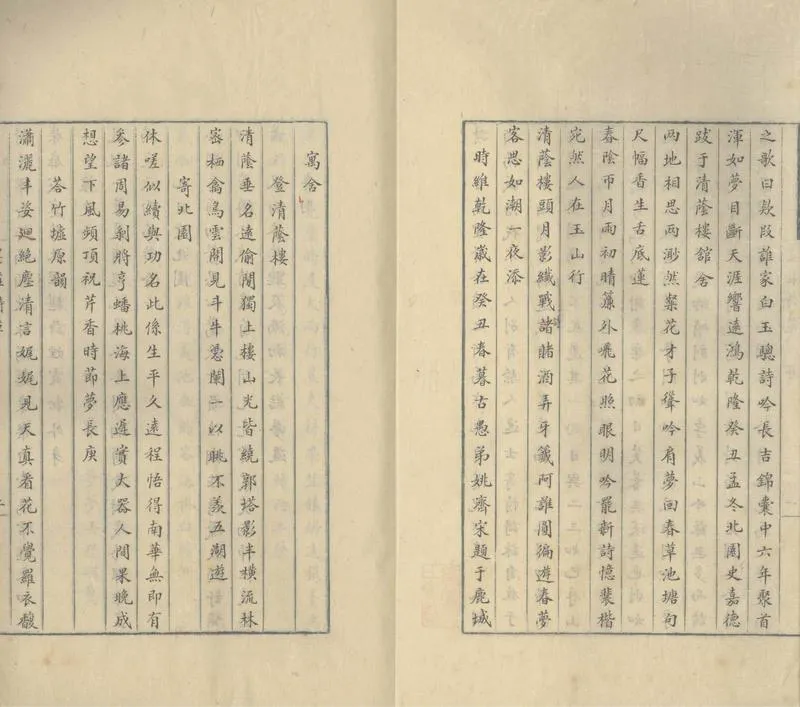 之歌曰欵段誰家白玉驄詩吟長吉錦囊中六年聚首
渾如夢目斷天涯響遠鴻乾隆癸丑孟冬北園史嘉德
跋于清蔭樓舘舍
兩地相思兩渺然粲花才子聳吟肩夢回春草池塘句
尺幅香生舌底蓮
春陰帀月雨初晴簾外飛花照眼明吟罷新詩憶裴楷
宛然人在玉山行
清蔭樓頭月影纖戰諸賭酒弄牙籤阿誰圓徧遊春夢
客思如潮一夜添
時維乾隆歲在癸丑春暮古愚弟姚齊宋題于鹿城
寓舍
登清蔭樓
清蔭垂名遠偷閒獨上樓山光皆繞郭塔影半橫流林
密栖禽鳥雲開見斗牛憑闌一以眺不羡五湖遊
寄北園
休嗟似續與功名此係生平久遠程悟得南華無即有
參諸周易剝將亨蟠桃海上應遲實大器人間果晚成
想望下風頻頂祝芹香時節夢長庚
荅竹墟原韻
瀟灑丰姿迥絶塵清言娓娓見天真看花不覺羅衣馥